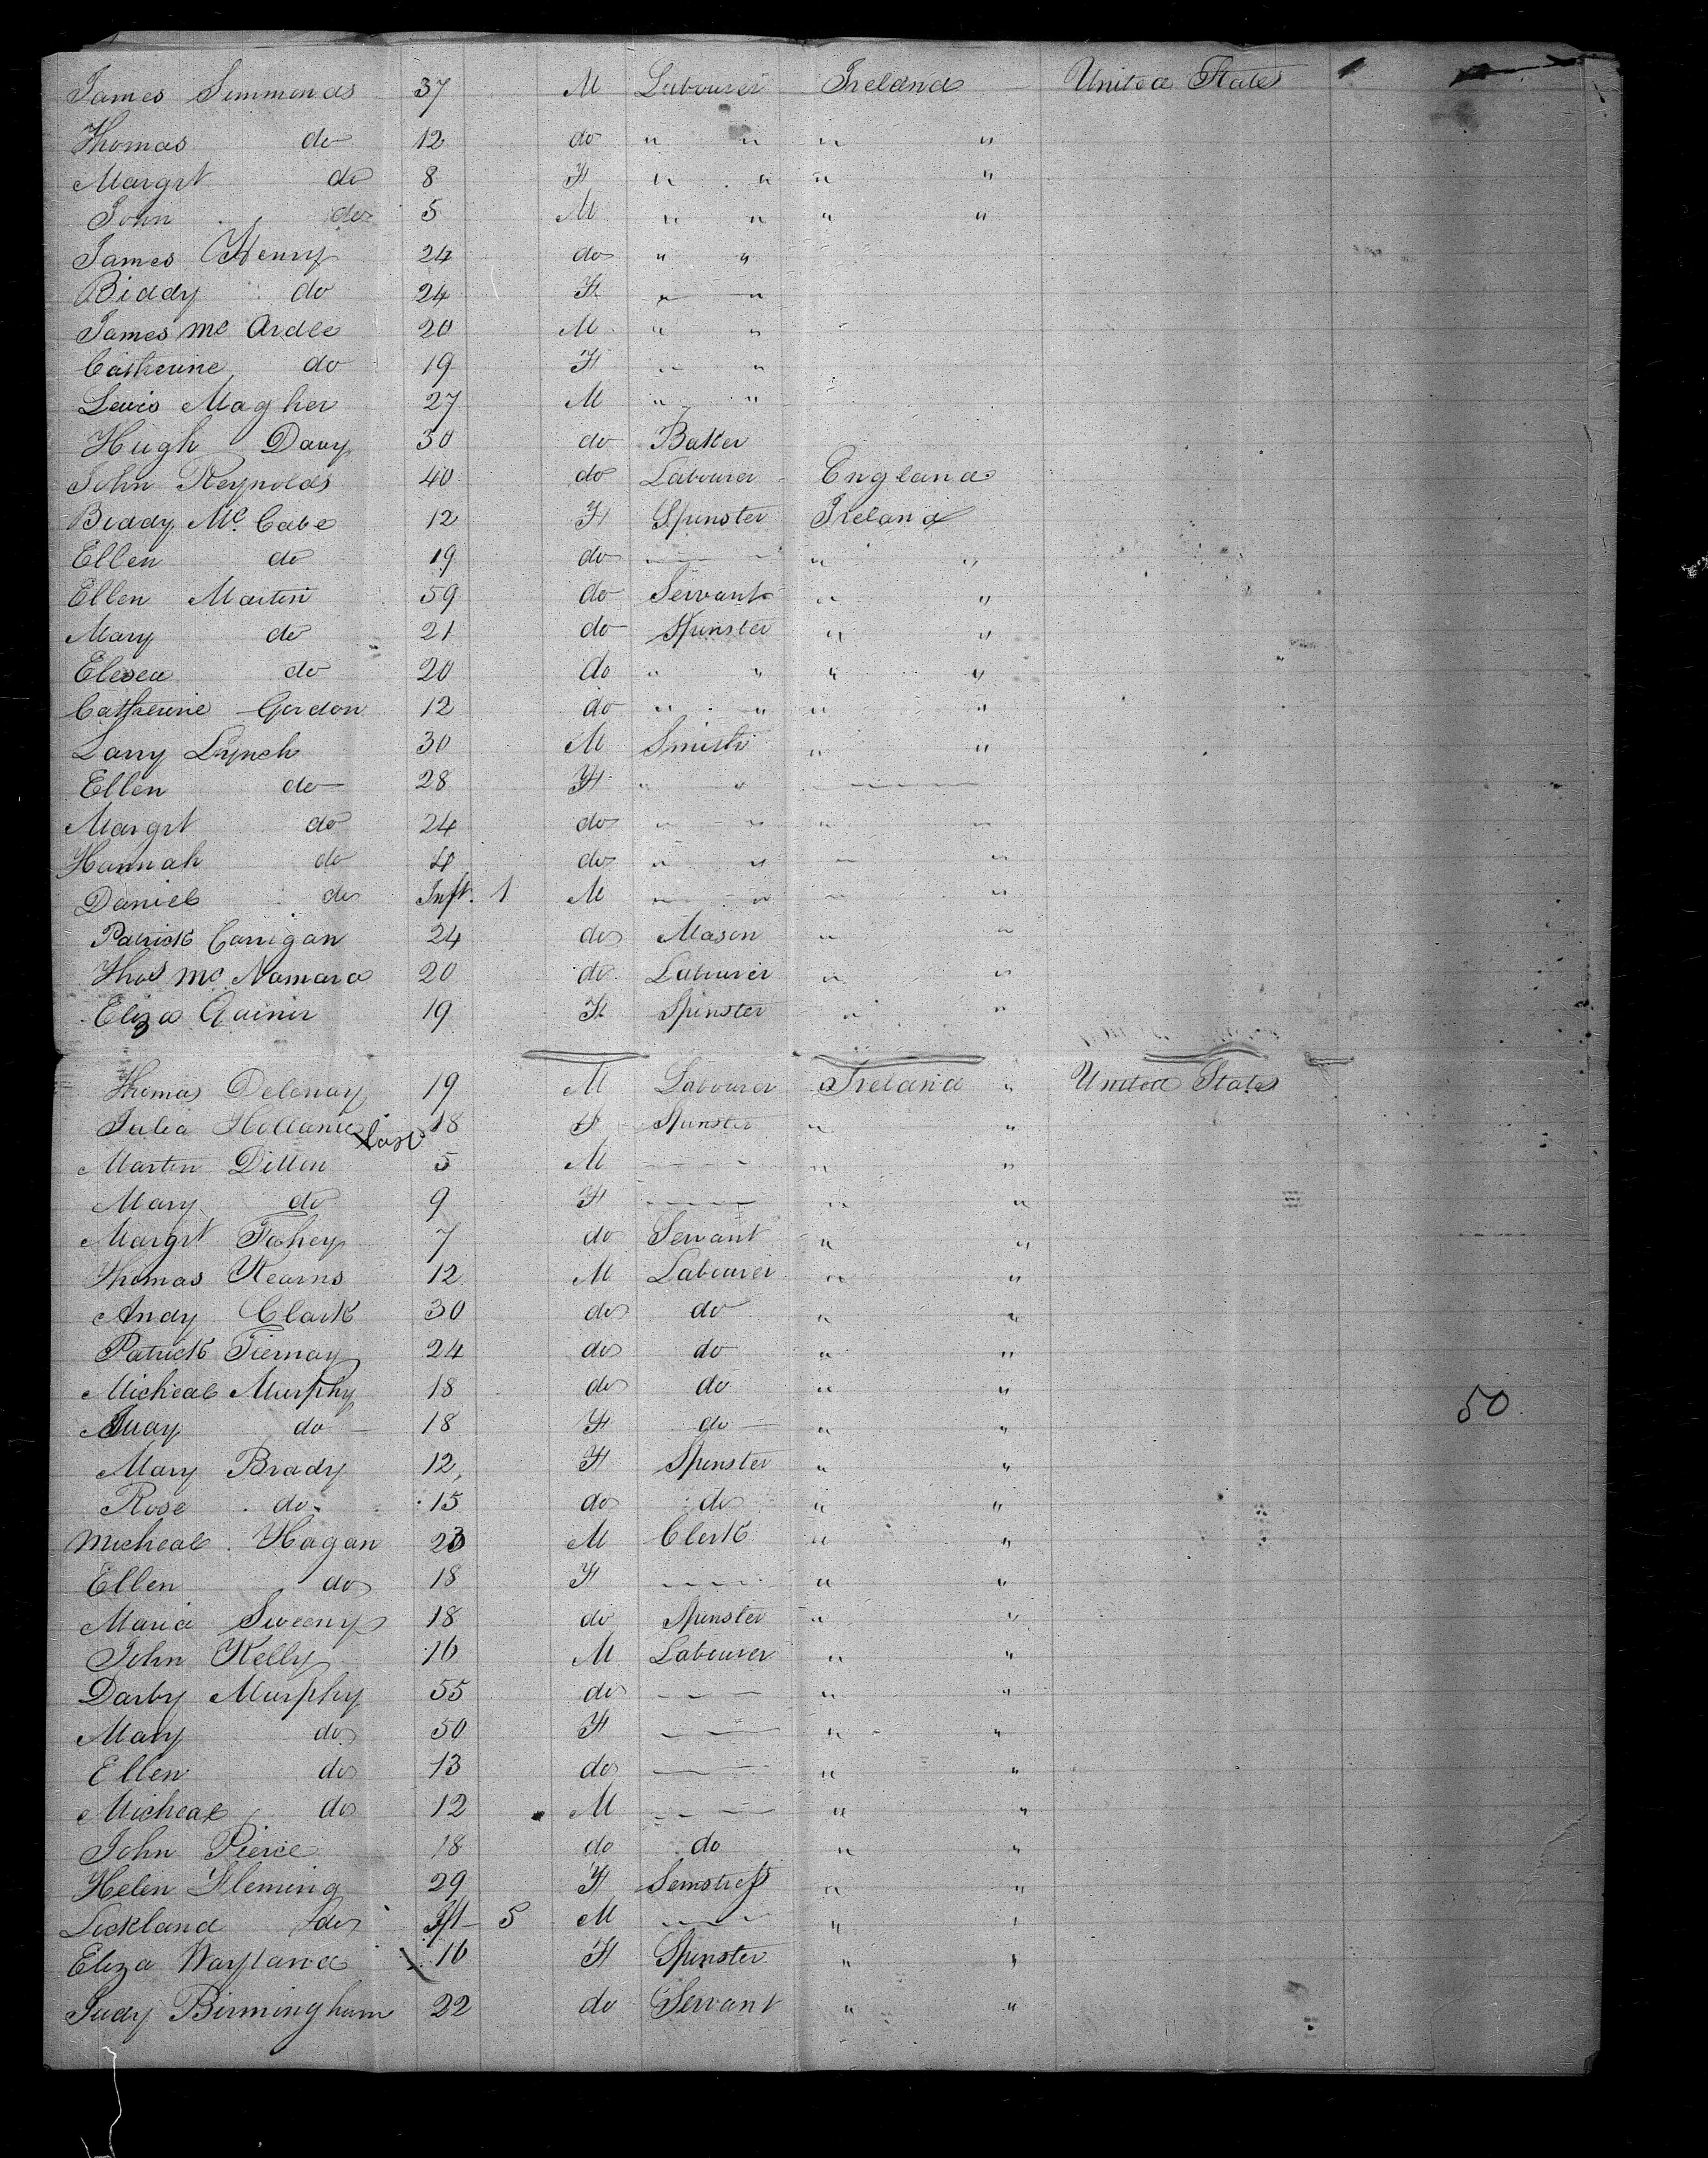 James Simmonds 37 M Labourer Ireland United States
Thomas do 12 do " " " "
Margrt do 8 F " " " "
John do 5 M " " " "
James Henry 24 do " "
Biddy do 24 F " "
James Mc Ardle 20 M " "
Catherine do 19 F " "
Lewis Magher 27 M " "
Hugh Davy 30 do Baker
John Reynolds 40 do Labourer England
Biddy Mc Cabe 12 F Spinster Ireland
Ellen do 19 do " "
Ellen Martin 59 do Servant " "
Mary do 21 do Spinster " "
do 20 do " " " "
Catherine Gordon 12 do " " " "
Larry Lynch 30 M Smith " "
Ellen do 28 F " "
Margrt do 24 do " " " "
Hannah do 4 do " " " "
Daniel do Inft. 1 M " " " "
Patrick Carrigan 24 do Mason " "
Thos Mc Namara 20 do Labourer " "
Eliza Gainir 19 F Spinster " "
Thomas Delenay 19 M Labourer Ireland " United States
Julia 18 F Spinster " "
Martin Dillon 5 M " "
Mary do 9 F " "
Margrt Fahey 7 do Servant " "
Thomas Kearns 12 M Labourer " "
Andy Clark 30 do do " "
Patrick Tiernay 24 do do " "
Micheal Murphy 18 do do " "
do 18 F do " "
50
Mary Brady 12 F Spinster " "
Rose do 15 do do " "
Micheal Hagan 23 M Clerk " "
Ellen do 18 F " "
Maria Sweeny 18 do Spinster " "
John Kelly 16 M Labourer " "
Darby Murphy 55 do " "
Mary do 50 F " "
Ellen do 13 do " "
Micheal do 12 M " "
John Pierce 18 do do " "
Helen Fleming 29 F Semstress " "
Lickland do Ift 5 M " "
Eliza Wayland 16 F Spinster " "
Judy Birmingham 22 do Servant " "